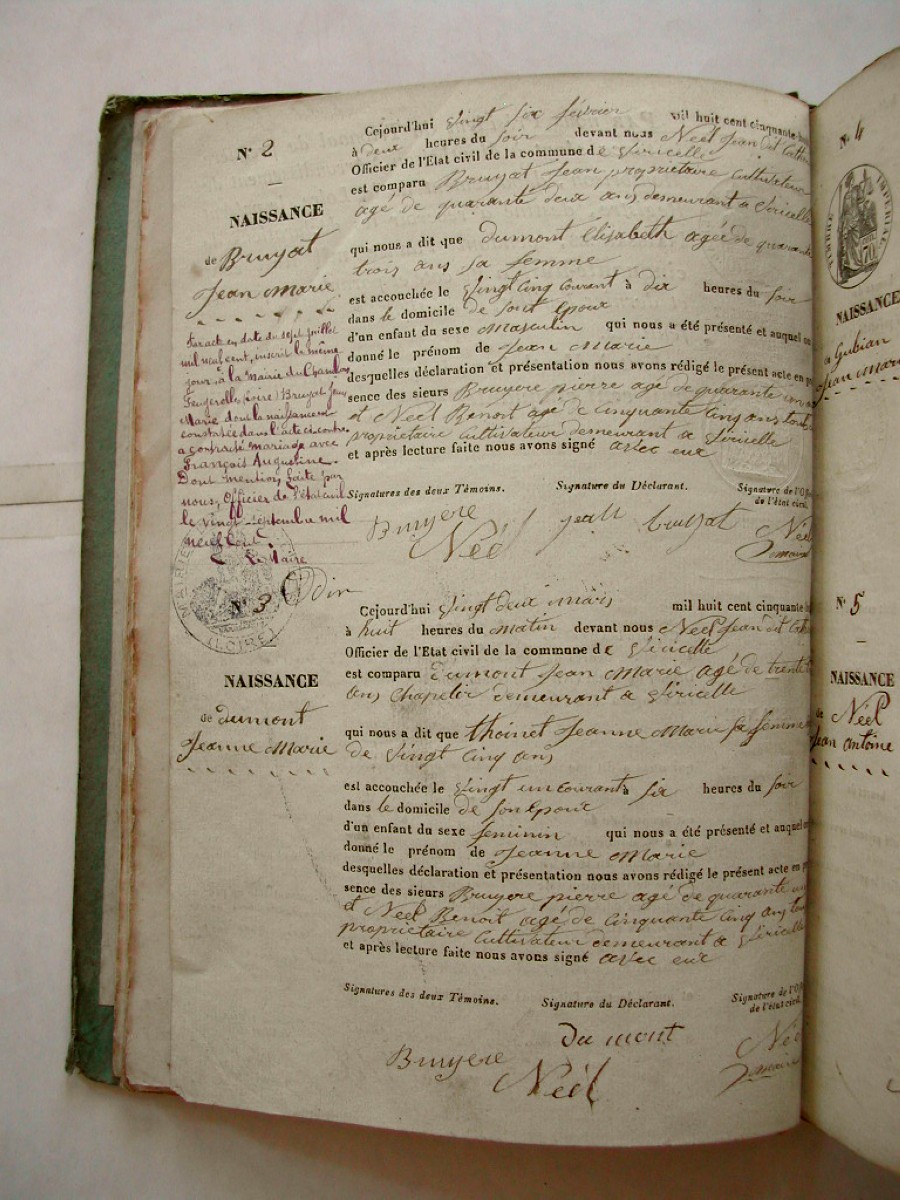 N° 2
NAISSANCE
de Bruyat
Jean Marie
Par acte en date du sept juillet
mil neuf cent, inscrit le même
jour à la mairie du Chambon
Feugerolles (Loire) Bruyat Jean
Marie dont la naissance est
constatée dans l'acte ci-contre
a contracté mariage avec
François Augustine.
Dont mention faite par
nous, Officier de l'état civil
le vingt septembre mil
neuf cent.
Le Maire
MAIRIE
(LOIRE)
Cejourd'hui vingt six février mil huit cent cinquante
à deux heures du soir devant nous Néel Jean dit
Officier de l'Etat civil de la commune de Viricelle
est comparu Bruyat Jean proprietaire Cultivateur
agé de quarante deux ans demeurant a Viricelle
qui nous a dit que Dumont Elisabeth agée de quarante
trois ans sa femme
est accouchée le vingt cinq courant à dix heures du soir
dans le domicile de sont Epoux
d'un enfant du sexe masculin qui nous a été présenté et auquel on
donné le prénom de Jean Marie
desquelles déclaration et présentation nous avons rédigé le présent acte en
sence des sieurs Bruyere pierre agé de quarante
et Néel Benoit agé de Cinquante Cinq ans tous
proprietaire Cultivateur demeurant a Viricelle
et après lecture faite nous avons signé avec eux
Signatures des deux Témoins. Signature du Déclarant. Signature de l'Of
de l'état civil.
Bruyere jean bruyat Néel
Néel maire
N° 3
NAISSANCE
de dumont
Jeanne Marie
Cejourd'hui vingt deux mars mil huit cent cinquante
à huit heures du matin devant nous Néel Jean dit
Officier de l'Etat civil de la commune de Viricelle
est comparu dumont Jean Marie agé de trente
ans Chapelir demeurant a Viricelle
qui nous a dit que thoinet Jeanne Marie sa femme
de vingt Cinq ans
est accouchée le vingt un courant à six heures du soir
dans le domicile de son Epoux
d'un enfant du sexe feminin qui nous a été présenté et auquel
donné le prénom de Jeanne Marie
desquelles déclaration et présentation nous avons rédigé le présent acte en
sence des sieurs Bruyere pierre agé de quarante
et Néel Benoit agé de Cinquante Cinq ans tous
proprietaire Cultivateur demeurant a Viricelle
et après lecture faite nous avons signé avec eux
Signatures des deux Témoins. Signature du Déclarant. Signature de l'Of
de l'état civil.
du mont
Bruyere Néel
Néel maire
N° 4
TIMBRE IMPÉRIAL
NAISSANCE
de Gubian
Jean Marie
N° 5
NAISSANCE
de Néel
Jean Antoine